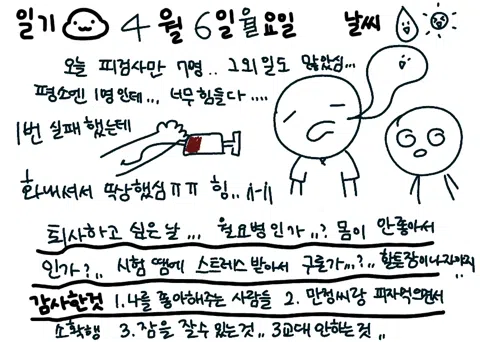 일기 4월 6일 월요일 날씨
오늘 피검사만 7명.. 그외 일도 많았심...
평소엔 1명인데... 너무 힘들다....
1번 실패 했는데
화내셔서 딱상했심ㅠㅠ 힝..
퇴사하고 싶은 날... 월요병인가..? 몸이 안좋아서
인가?.. 시험 땜에 스트레스 받아서 구를가...?..
감사한것 1. 나를 좋아해주는 사람들 2. 만정씨랑 피자먹으면서
소확행 3. 잠을 잘수 있는것.. 3교대 안하는 것..